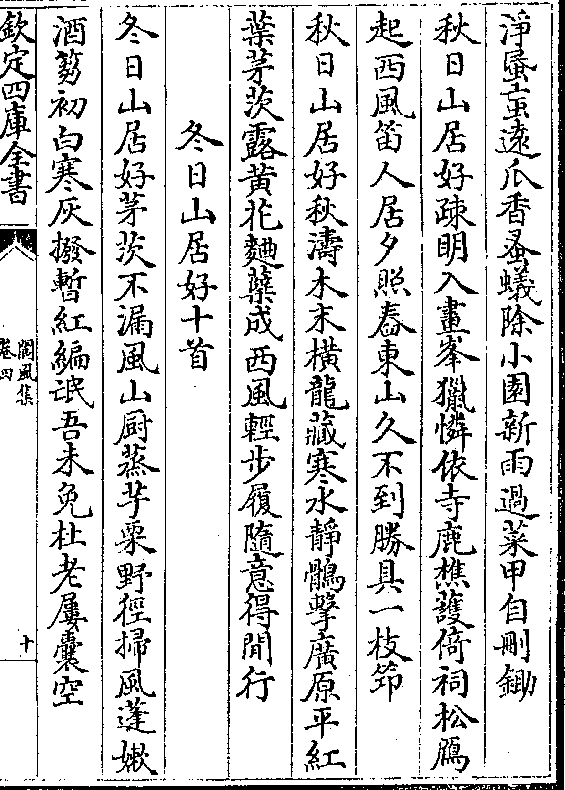 淨蚤䖝遠爪香蚤蟻除小園新雨過菜甲自刪鋤
秋日山居好疎明入畫峯獵憐依寺鹿樵䕶倚祠松鴈
起西風笛人居夕照舂東山久不到勝具一枝筇
秋日山居好秋濤木末橫龍藏寒水靜鶻擊廣原平紅
葉茅茨露黃花麯糵成西風輕步履隨意得閒行
冬日山居好十首
冬日山居好茅茨不漏風山厨蒸芋栗野徑掃風蓬嫰
酒篘初白寒灰撥暫紅編氓吾未免杜老屢囊空
欽定四庫全書
閬風集
卷四
十